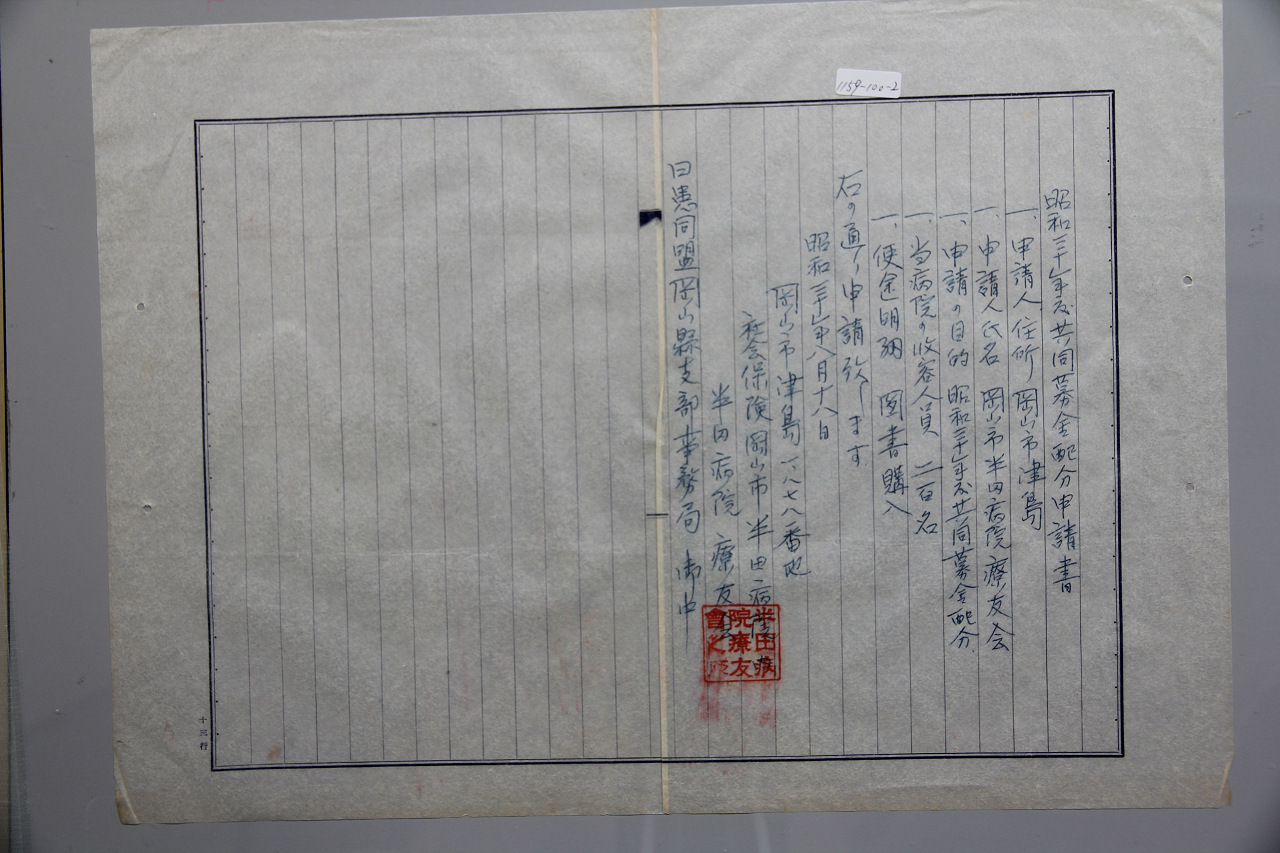 1159-100-2
昭和三十一年度共同募金配分申請書
一、申請人住所 岡山市津島
一、申請人氏名 岡山市半田病院療友会
一、申請の目的 昭和三十一年度共同募金配分
一、当病院の收容人員 二百名
一、使途明細 図書購入
右の通り申請致します
昭和三十一年八月十八日
岡山市津島一、八七八番地
社会保険岡山市半田病院
半田病院療友会
日患同盟岡山縣支部事務局 御中
半田病
院療友
會之印
十三行